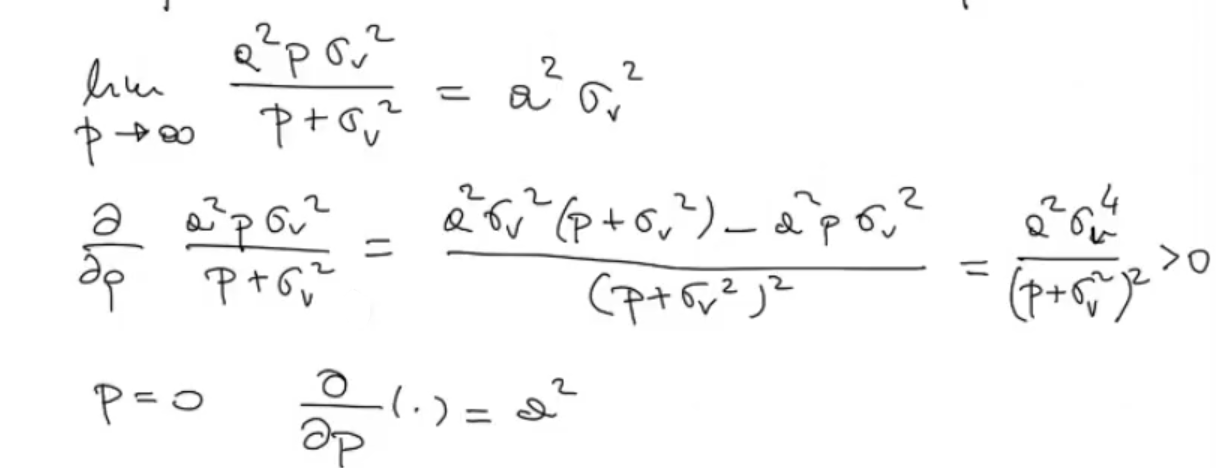 lim p→∞ a²pσᵥ² / (p+σᵥ²) = a²σᵥ²
∂/∂p a²pσᵥ² / (p+σᵥ²) = (a²σᵥ²(p+σᵥ²) − a²pσᵥ²) / (p+σᵥ²)² = a²σᵥ⁴ / (p+σᵥ²)² > 0
p=0 ∂/∂p (·) = a²